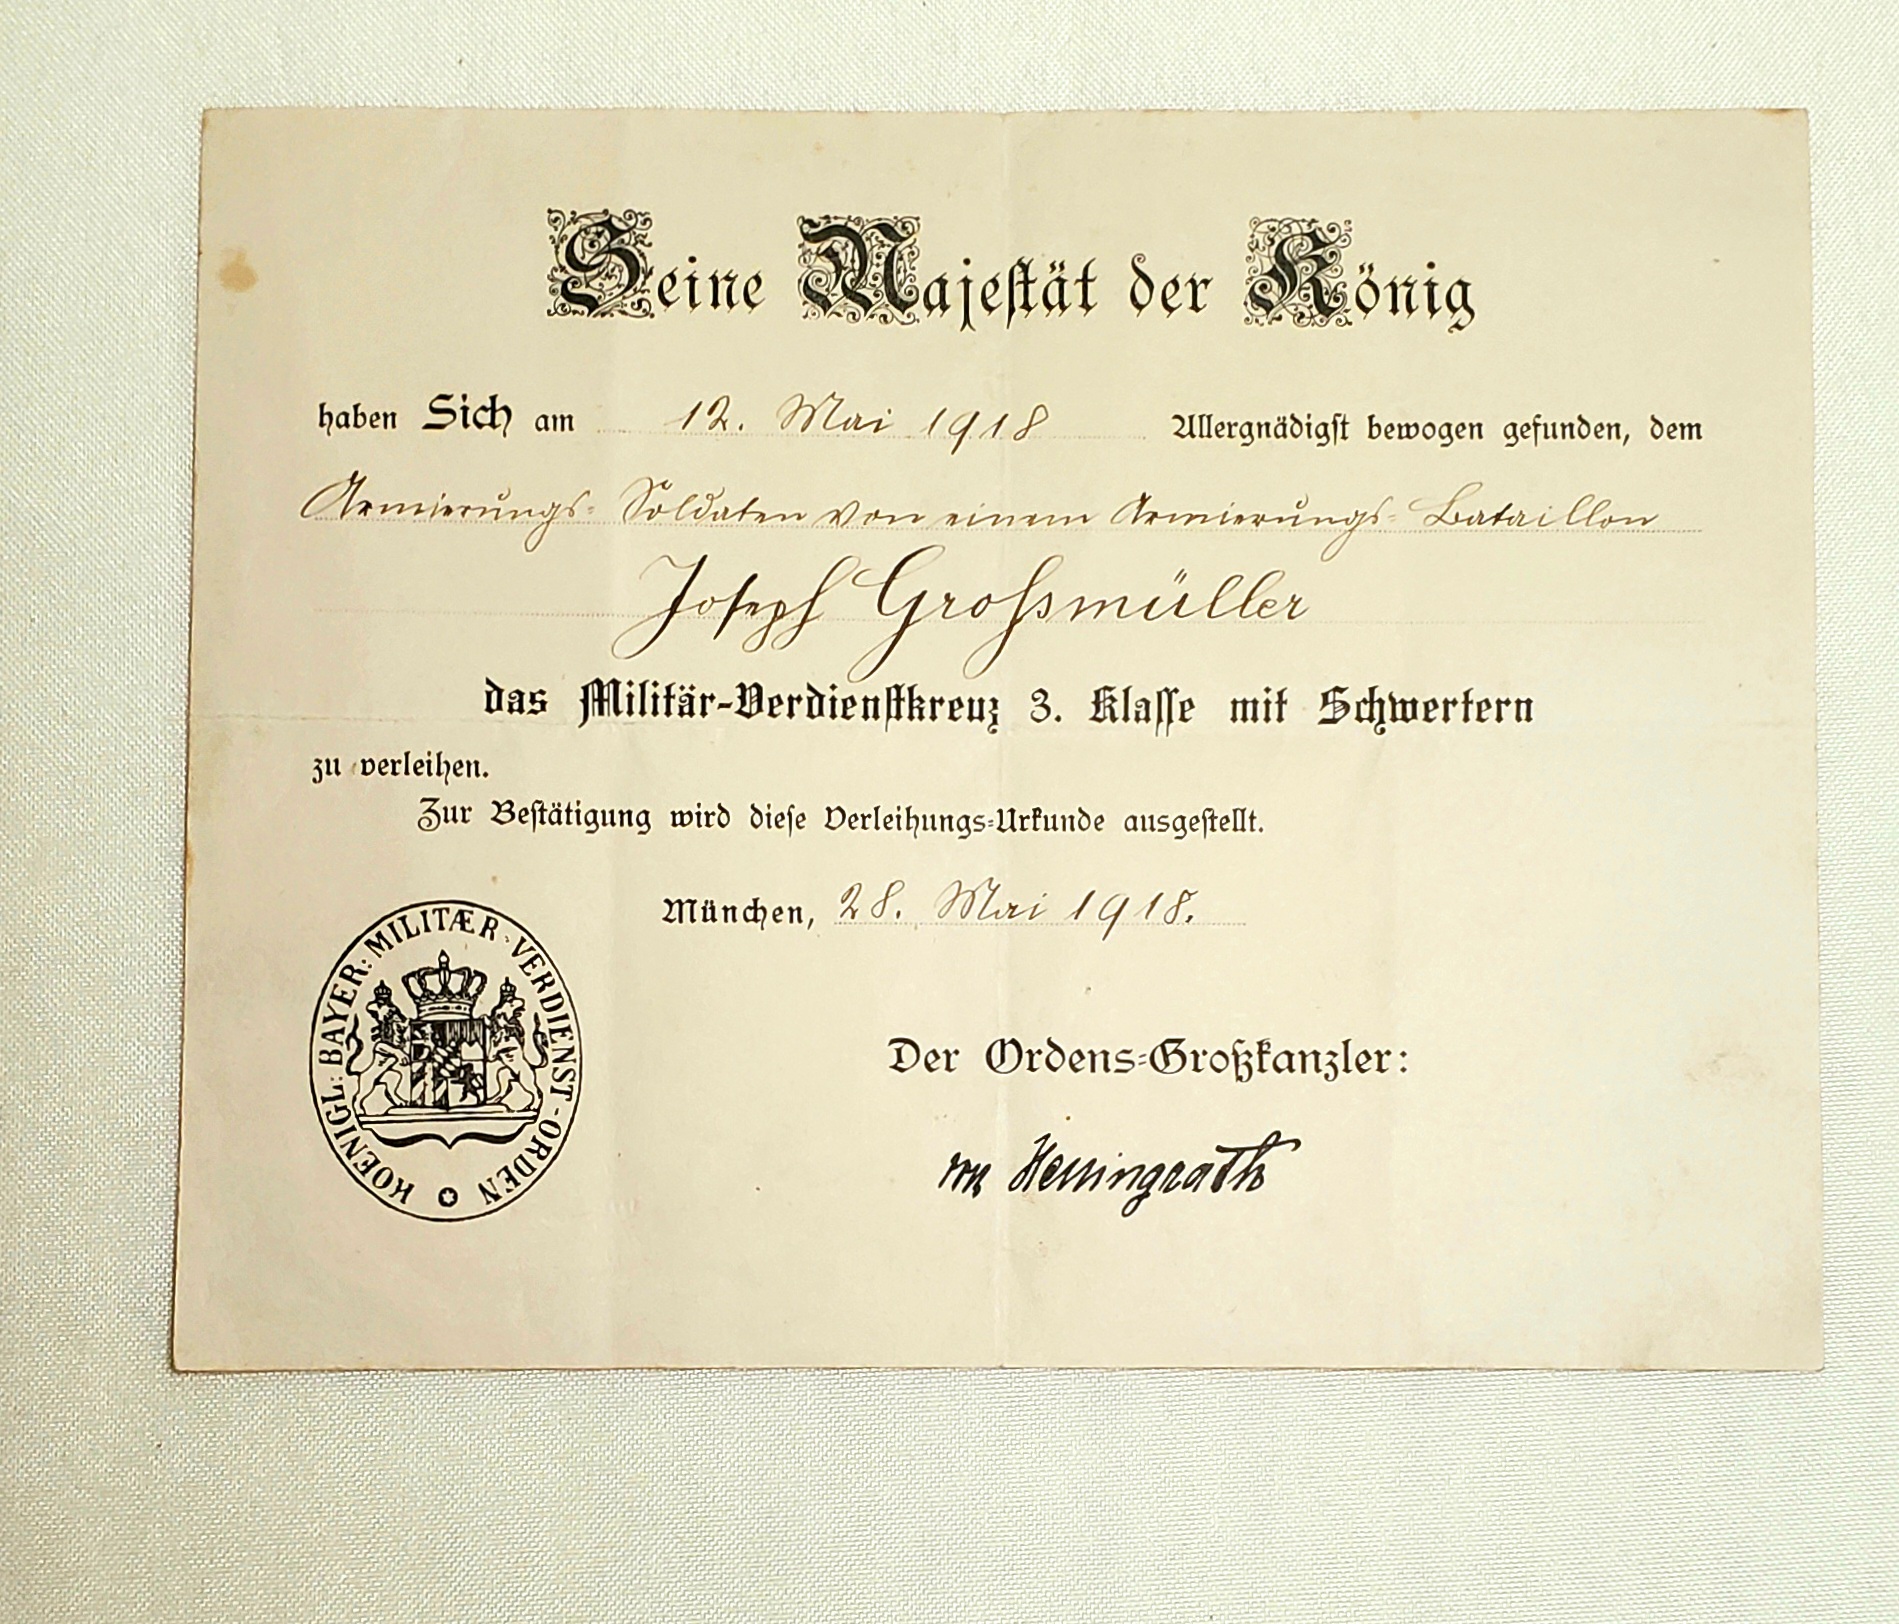 Seine Majestät der König
haben Sich am 12. Mai 1918 Allergnädigst bewogen gefunden, dem
Armierungs- Soldaten von einem Armierungs- Bataillon
Joseph Großmüller
das Militär-Verdienstkreuz 3. Klasse mit Schwertern
zu verleihen.
Zur Bestätigung wird diese Verleihungs-Urkunde ausgestellt.
München, 28. Mai 1918.
KOENIGL: BAYER: MILITÆR-VERDIENST-ORDEN
Der Ordens-Großkanzler:
von Hellingrath